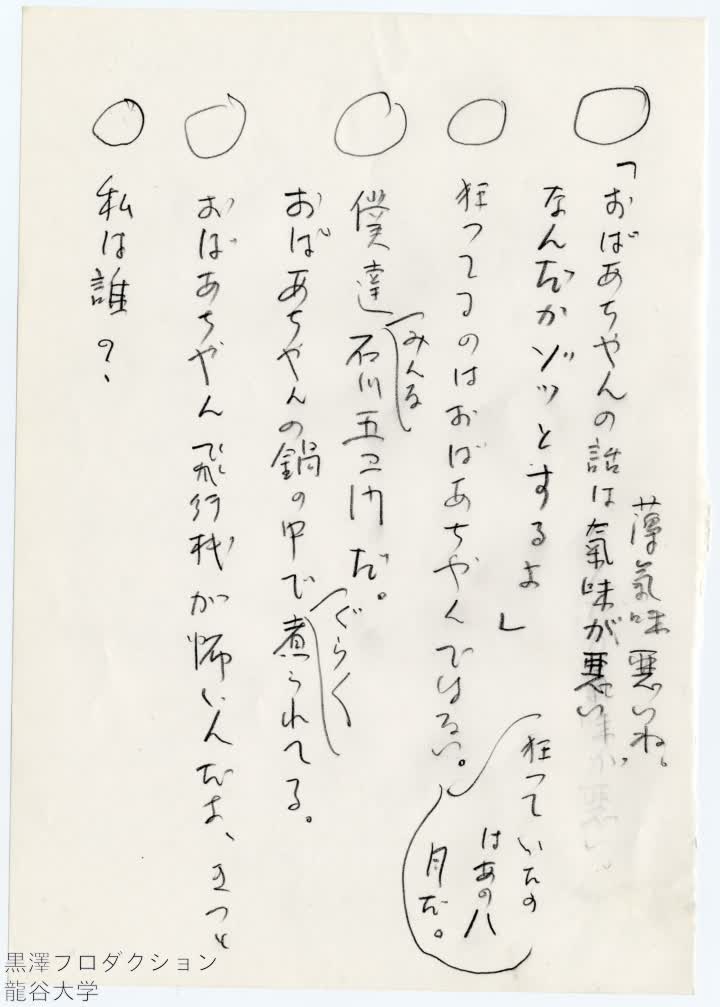 ○「おばあちゃんの話は氣味が悪い
薄氣味悪いね。
なんだかゾッとするよ」
○狂ってるのはおばあちゃんではない。
狂っていたの
はあの八
月だ。
○僕達石川五ヱ門だ。
みんな
おばあちゃんの鍋の中で煮られてる。
ぐらぐら
○おばあちゃん飛行機が怖いんだよ、きっと
○私は誰?
黒澤プロダクション
龍谷大学